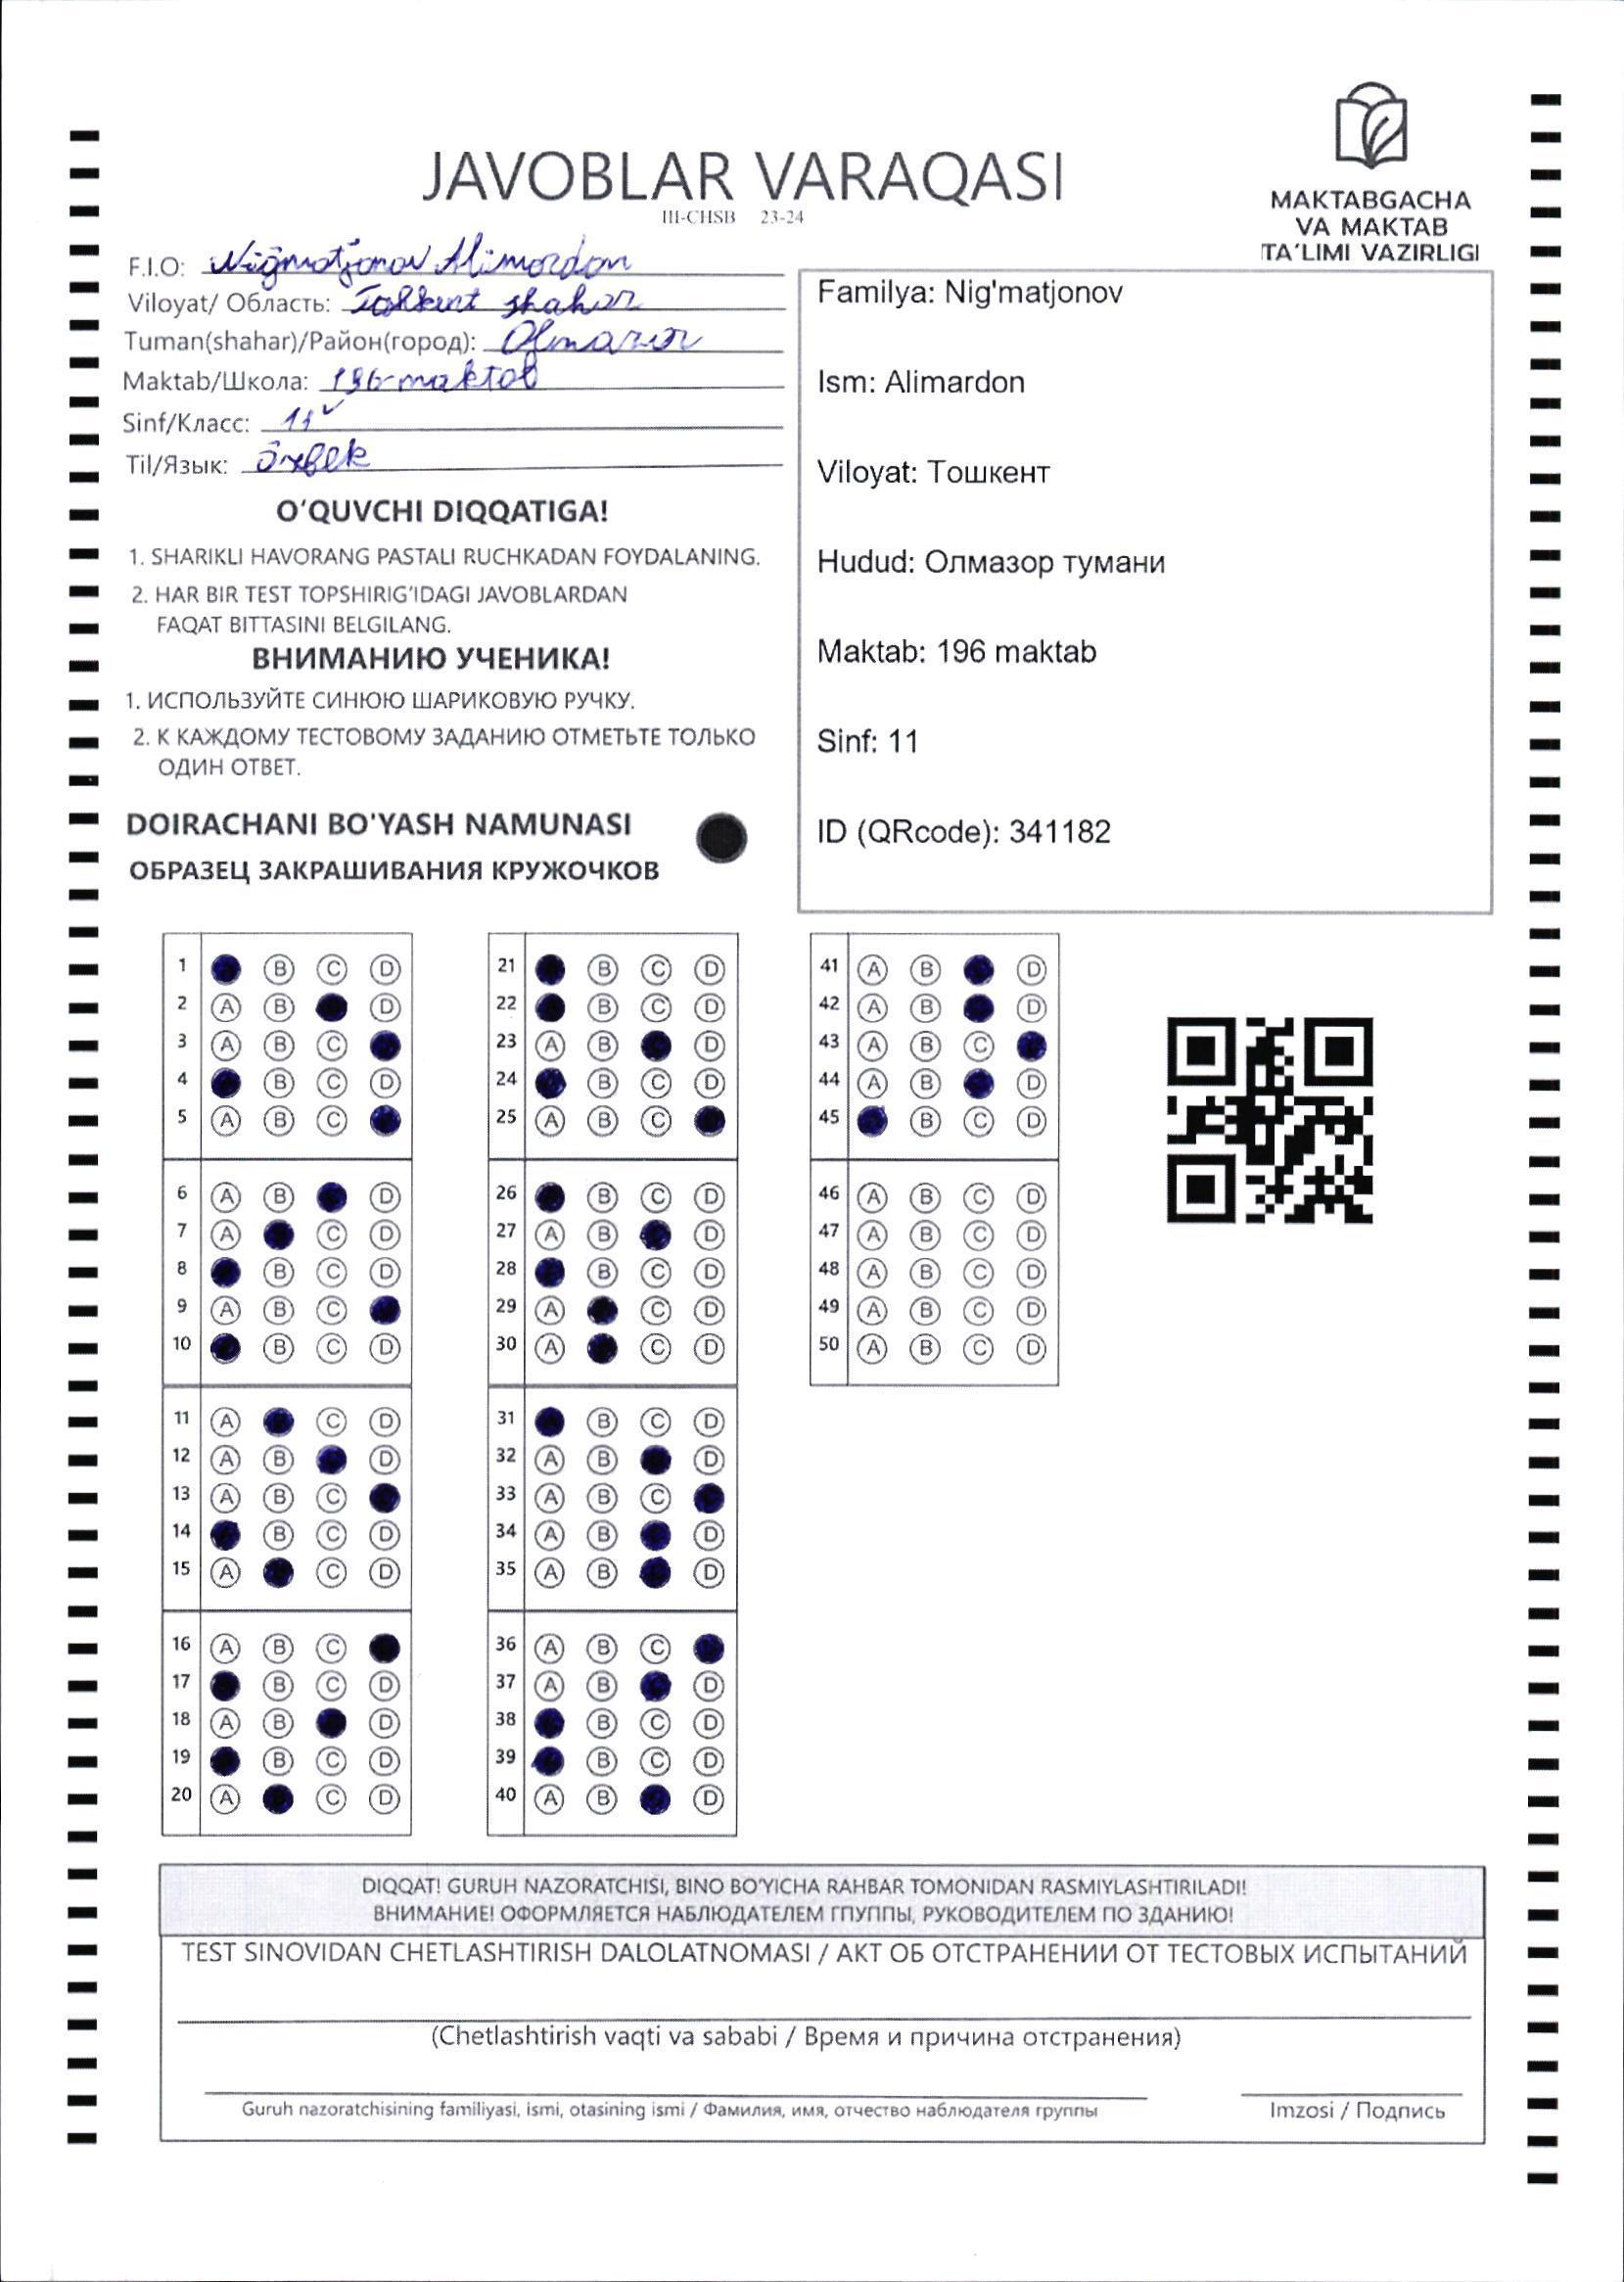 JAVOBLAR VARAQASI
III-CHSB 23-24
MAKTABGACHA
VA MAKTAB
TA'LIMI VAZIRLIGI
F.I.O: Nig̃matjonov Alimardon
Viloyat/ Область: Toshkent shahar
Tuman(shahar)/Район(город): Olmazor
Maktab/Школа: 196-maktab
Sinf/Класс: 11
Til/Язык: õzbek
O'QUVCHI DIQQATIGA!
1. SHARIKLI HAVORANG PASTALI RUCHKADAN FOYDALANING.
2. HAR BIR TEST TOPSHIRIG'IDAGI JAVOBLARDAN
FAQAT BITTASINI BELGILANG.
ВНИМАНИЮ УЧЕНИКА!
1. ИСПОЛЬЗУЙТЕ СИНЮЮ ШАРИКОВУЮ РУЧКУ.
2. К КАЖДОМУ ТЕСТОВОМУ ЗАДАНИЮ ОТМЕТЬТЕ ТОЛЬКО
ОДИН ОТВЕТ.
DOIRACHANI BO'YASH NAMUNASI
ОБРАЗЕЦ ЗАКРАШИВАНИЯ КРУЖОЧКОВ
Familya: Nig'matjonov
Ism: Alimardon
Viloyat: Тошкент
Hudud: Олмазор тумани
Maktab: 196 maktab
Sinf: 11
ID (QRcode): 341182
1 B C D
2 A B D
3 A B C
4 B C D
5 A B C
6 A B D
7 A C D
8 B C D
9 A B C
10 B C D
11 A C D
12 A B D
13 A B C
14 B C D
15 A C D
16 A B C
17 B C D
18 A B D
19 B C D
20 A C D
21 B C D
22 B C D
23 A B D
24 B C D
25 A B C
26 B C D
27 A B D
28 B C D
29 A C D
30 A C D
31 B C D
32 A B D
33 A B C
34 A B D
35 A B D
36 A B C
37 A B D
38 B C D
39 B C D
40 A B D
41 A B D
42 A B D
43 A B C
44 A B D
45 B C D
46 A B C D
47 A B C D
48 A B C D
49 A B C D
50 A B C D
DIQQAT! GURUH NAZORATCHISI, BINO BO'YICHA RAHBAR TOMONIDAN RASMIYLASHTIRILADI!
ВНИМАНИЕ! ОФОРМЛЯЕТСЯ НАБЛЮДАТЕЛЕМ ГПУППЫ, РУКОВОДИТЕЛЕМ ПО ЗДАНИЮ!
TEST SINOVIDAN CHETLASHTIRISH DALOLATNOMASI / АКТ ОБ ОТСТРАНЕНИИ ОТ ТЕСТОВЫХ ИСПЫТАНИЙ
(Chetlashtirish vaqti va sababi / Время и причина отстранения)
Guruh nazoratchisining familiyasi, ismi, otasining ismi / Фамилия, имя, отчество наблюдателя группы
Imzosi / Подпись